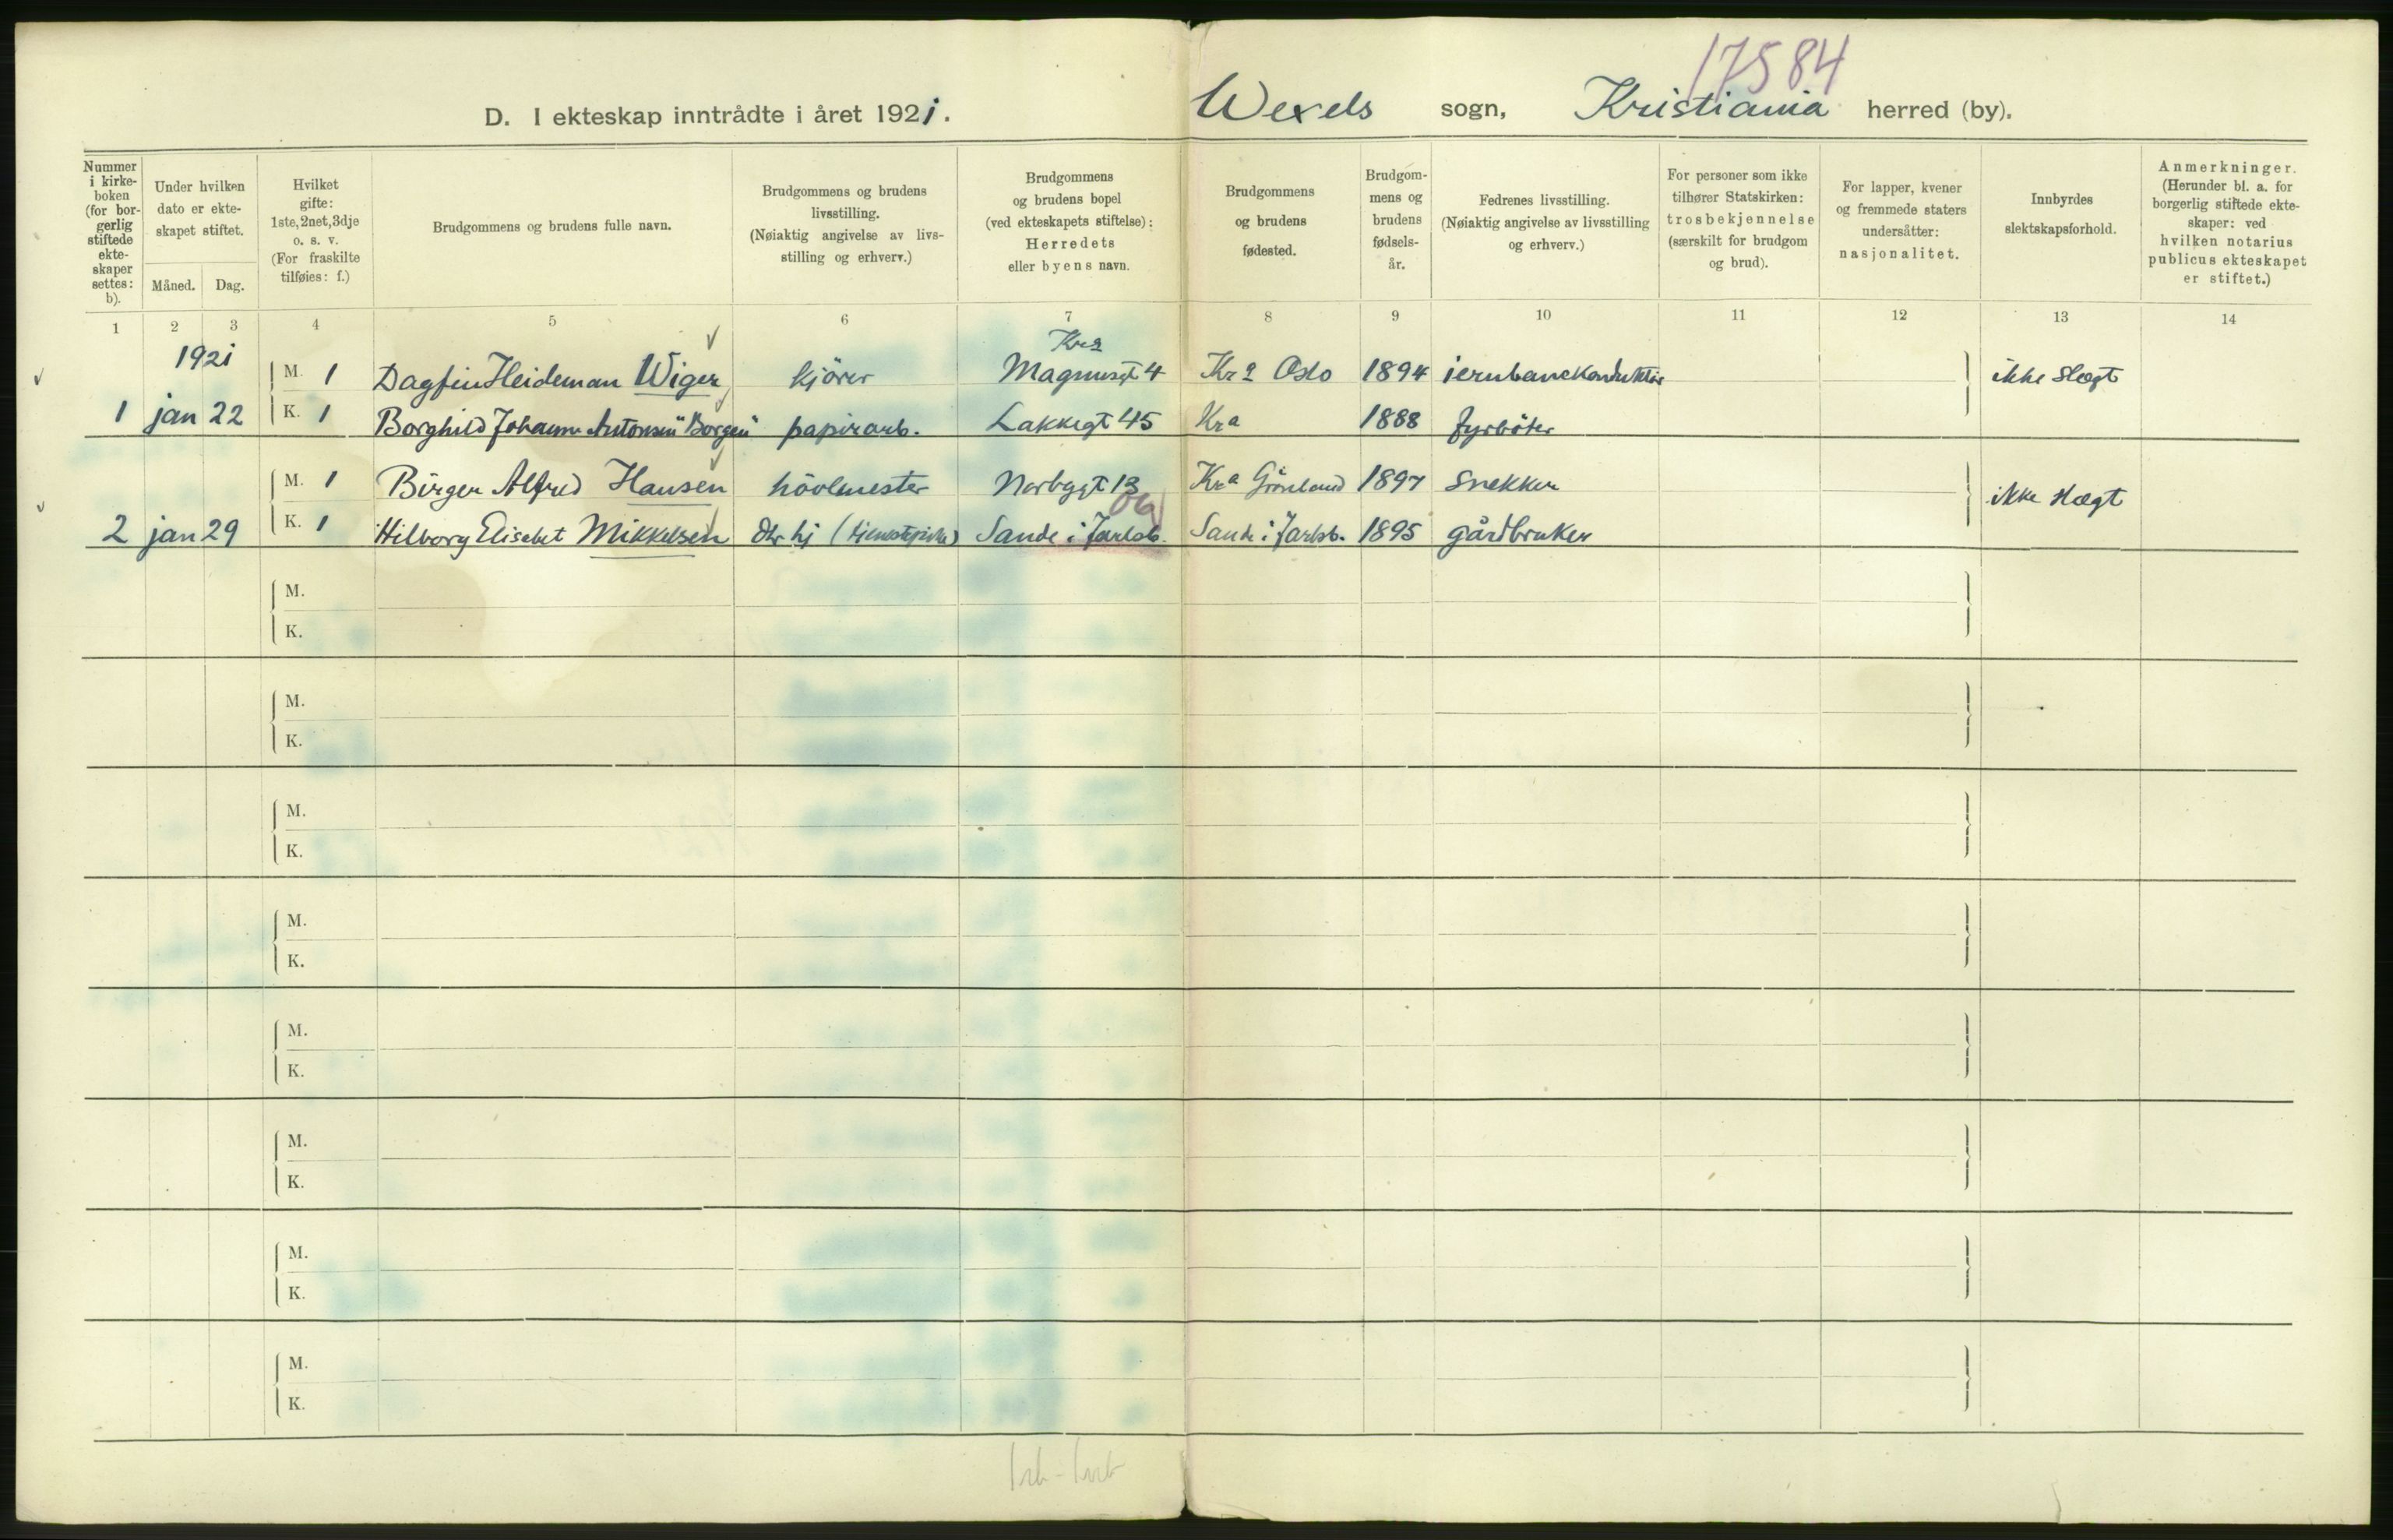 17584
D. I ekteskap inntrådte i året 1921. Wexels sogn, Kristiania herred (by).
Nummer i kirkeboken (for borgerlig stiftede ekteskaper settes: b).
Under hvilken dato er ekteskapet stiftet.
Måned. Dag.
Hvilket gifte: 1ste, 2net, 3dje o. s. v. (For fraskilte tilføies: f.)
Brudgommens og brudens fulle navn.
Brudgommens og brudens livsstilling. (Nøiaktig angivelse av livsstilling og erhverv.)
Brudgommens og brudens bopel (ved ekteskapets stiftelse): Herredets eller byens navn.
Brudgommens og brudens fødested.
Brudgommens og brudens fødselsår.
Fedrenes livsstilling. (Nøiaktig angivelse av livsstilling og erhverv.)
For personer som ikke tilhører Statskirken: trosbekjennelse (særskilt for brudgom og brud).
For lapper, kvener og fremmede staters undersåtter: nasjonalitet.
Innbyrdes slektskapsforhold.
Anmerkninger. (Herunder bl. a. for borgerlig stiftede ekteskaper: ved hvilken notarius publicus ekteskapet er stiftet.)
1 2 3 4 5 6 7 8 9 10 11 12 13 14
1921 Kra
M. 1 Dagfin Heideman Wiger kjörer Magnusgt 4 Kra Oslo 1894 jernbanekonduktör ikke slægt
1 jan 22 K. 1 Borghild Johanne Antonsen "Borgen" papirarb. Lakkegt 45 Kra 1888 fyrböter
M. 1 Birger Alfred Hansen hövlmester Norbygt 13 Kra Grönland 1897 Snekker ikke slægt
2 jan 29 K. 1 Hilborg Elisabet Mikkelsen (tjenestepike) Sande i Jarlsb. Sande i Jarlsb. 1895 gårdbruker
M.
K.
M.
K.
M.
K.
M.
K.
M.
K.
M.
K.
M.
K.
M.
K.